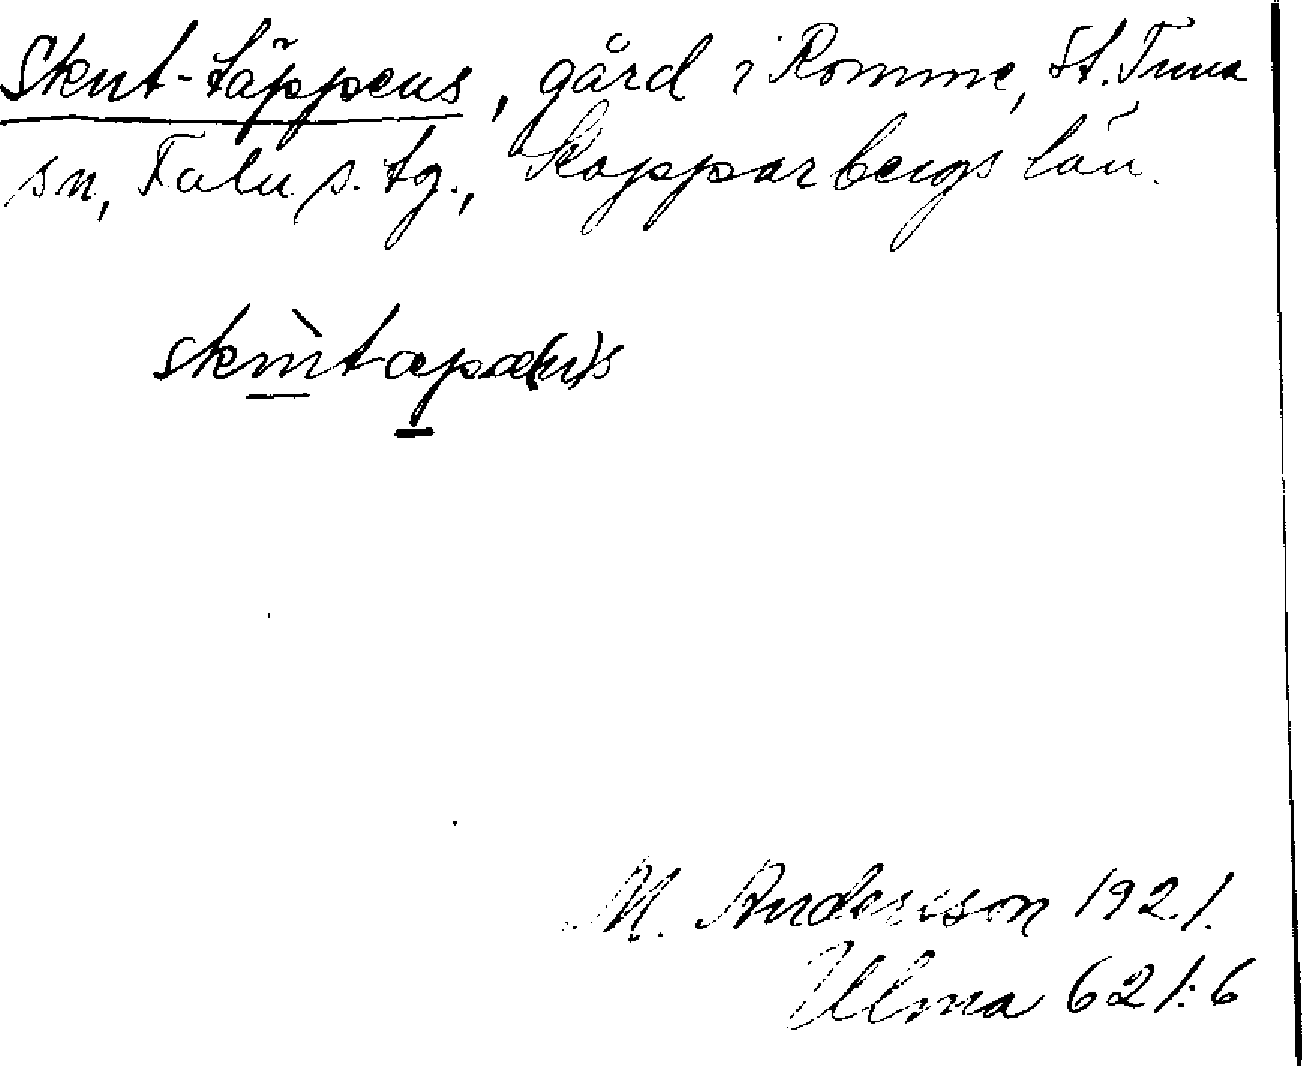 Skut-täppens, gård i Romme, St. Tuna
sn, Falu s. tg., Kopparbergs län.
M. Andersson 1921.
Ulma 621:6